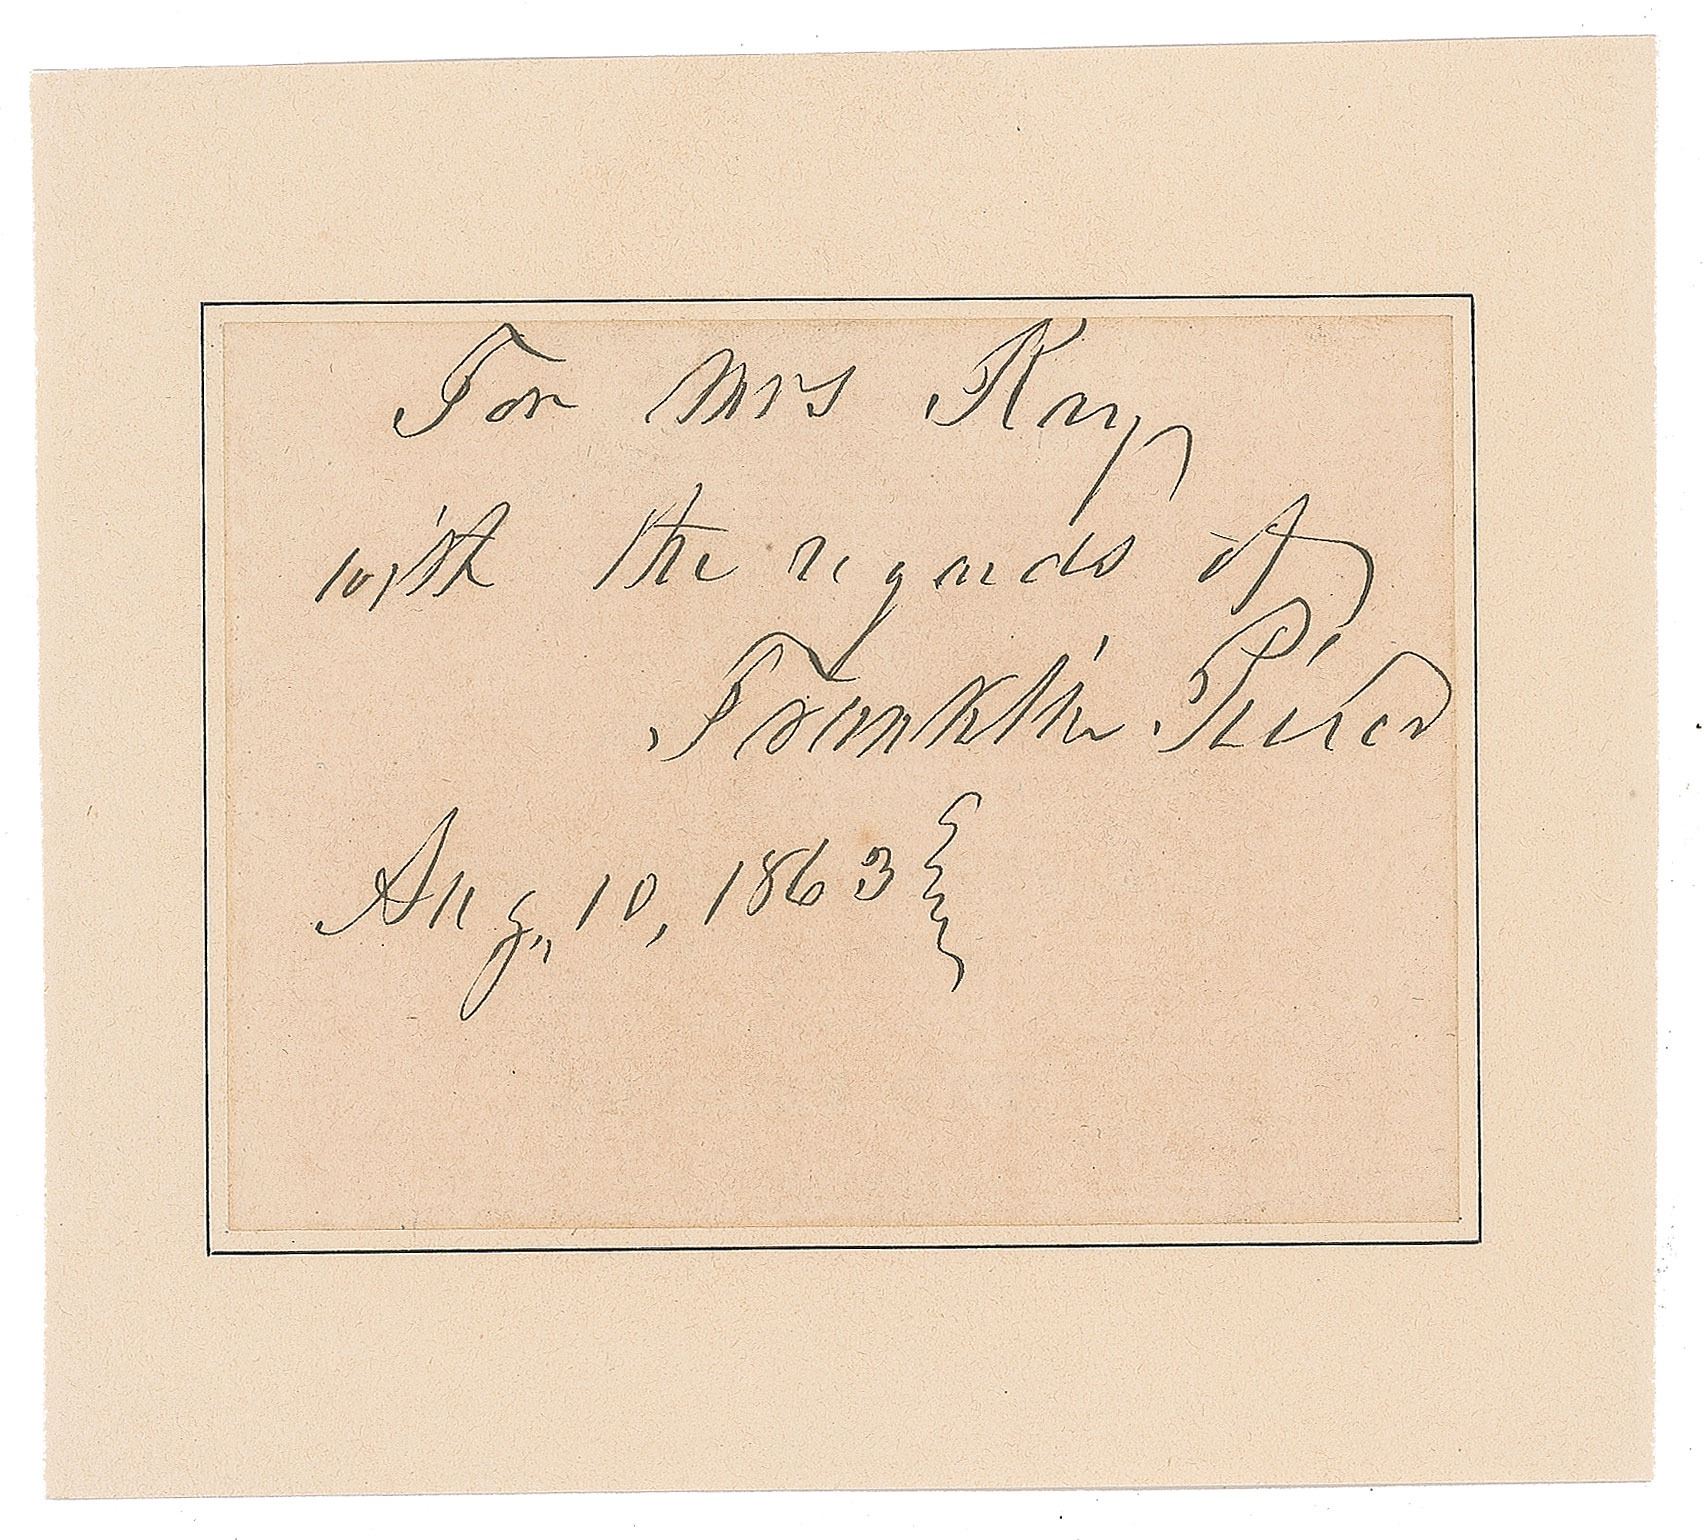 For Mrs Kay
with the regards of
Franklin Pierce
Aug. 10, 1863